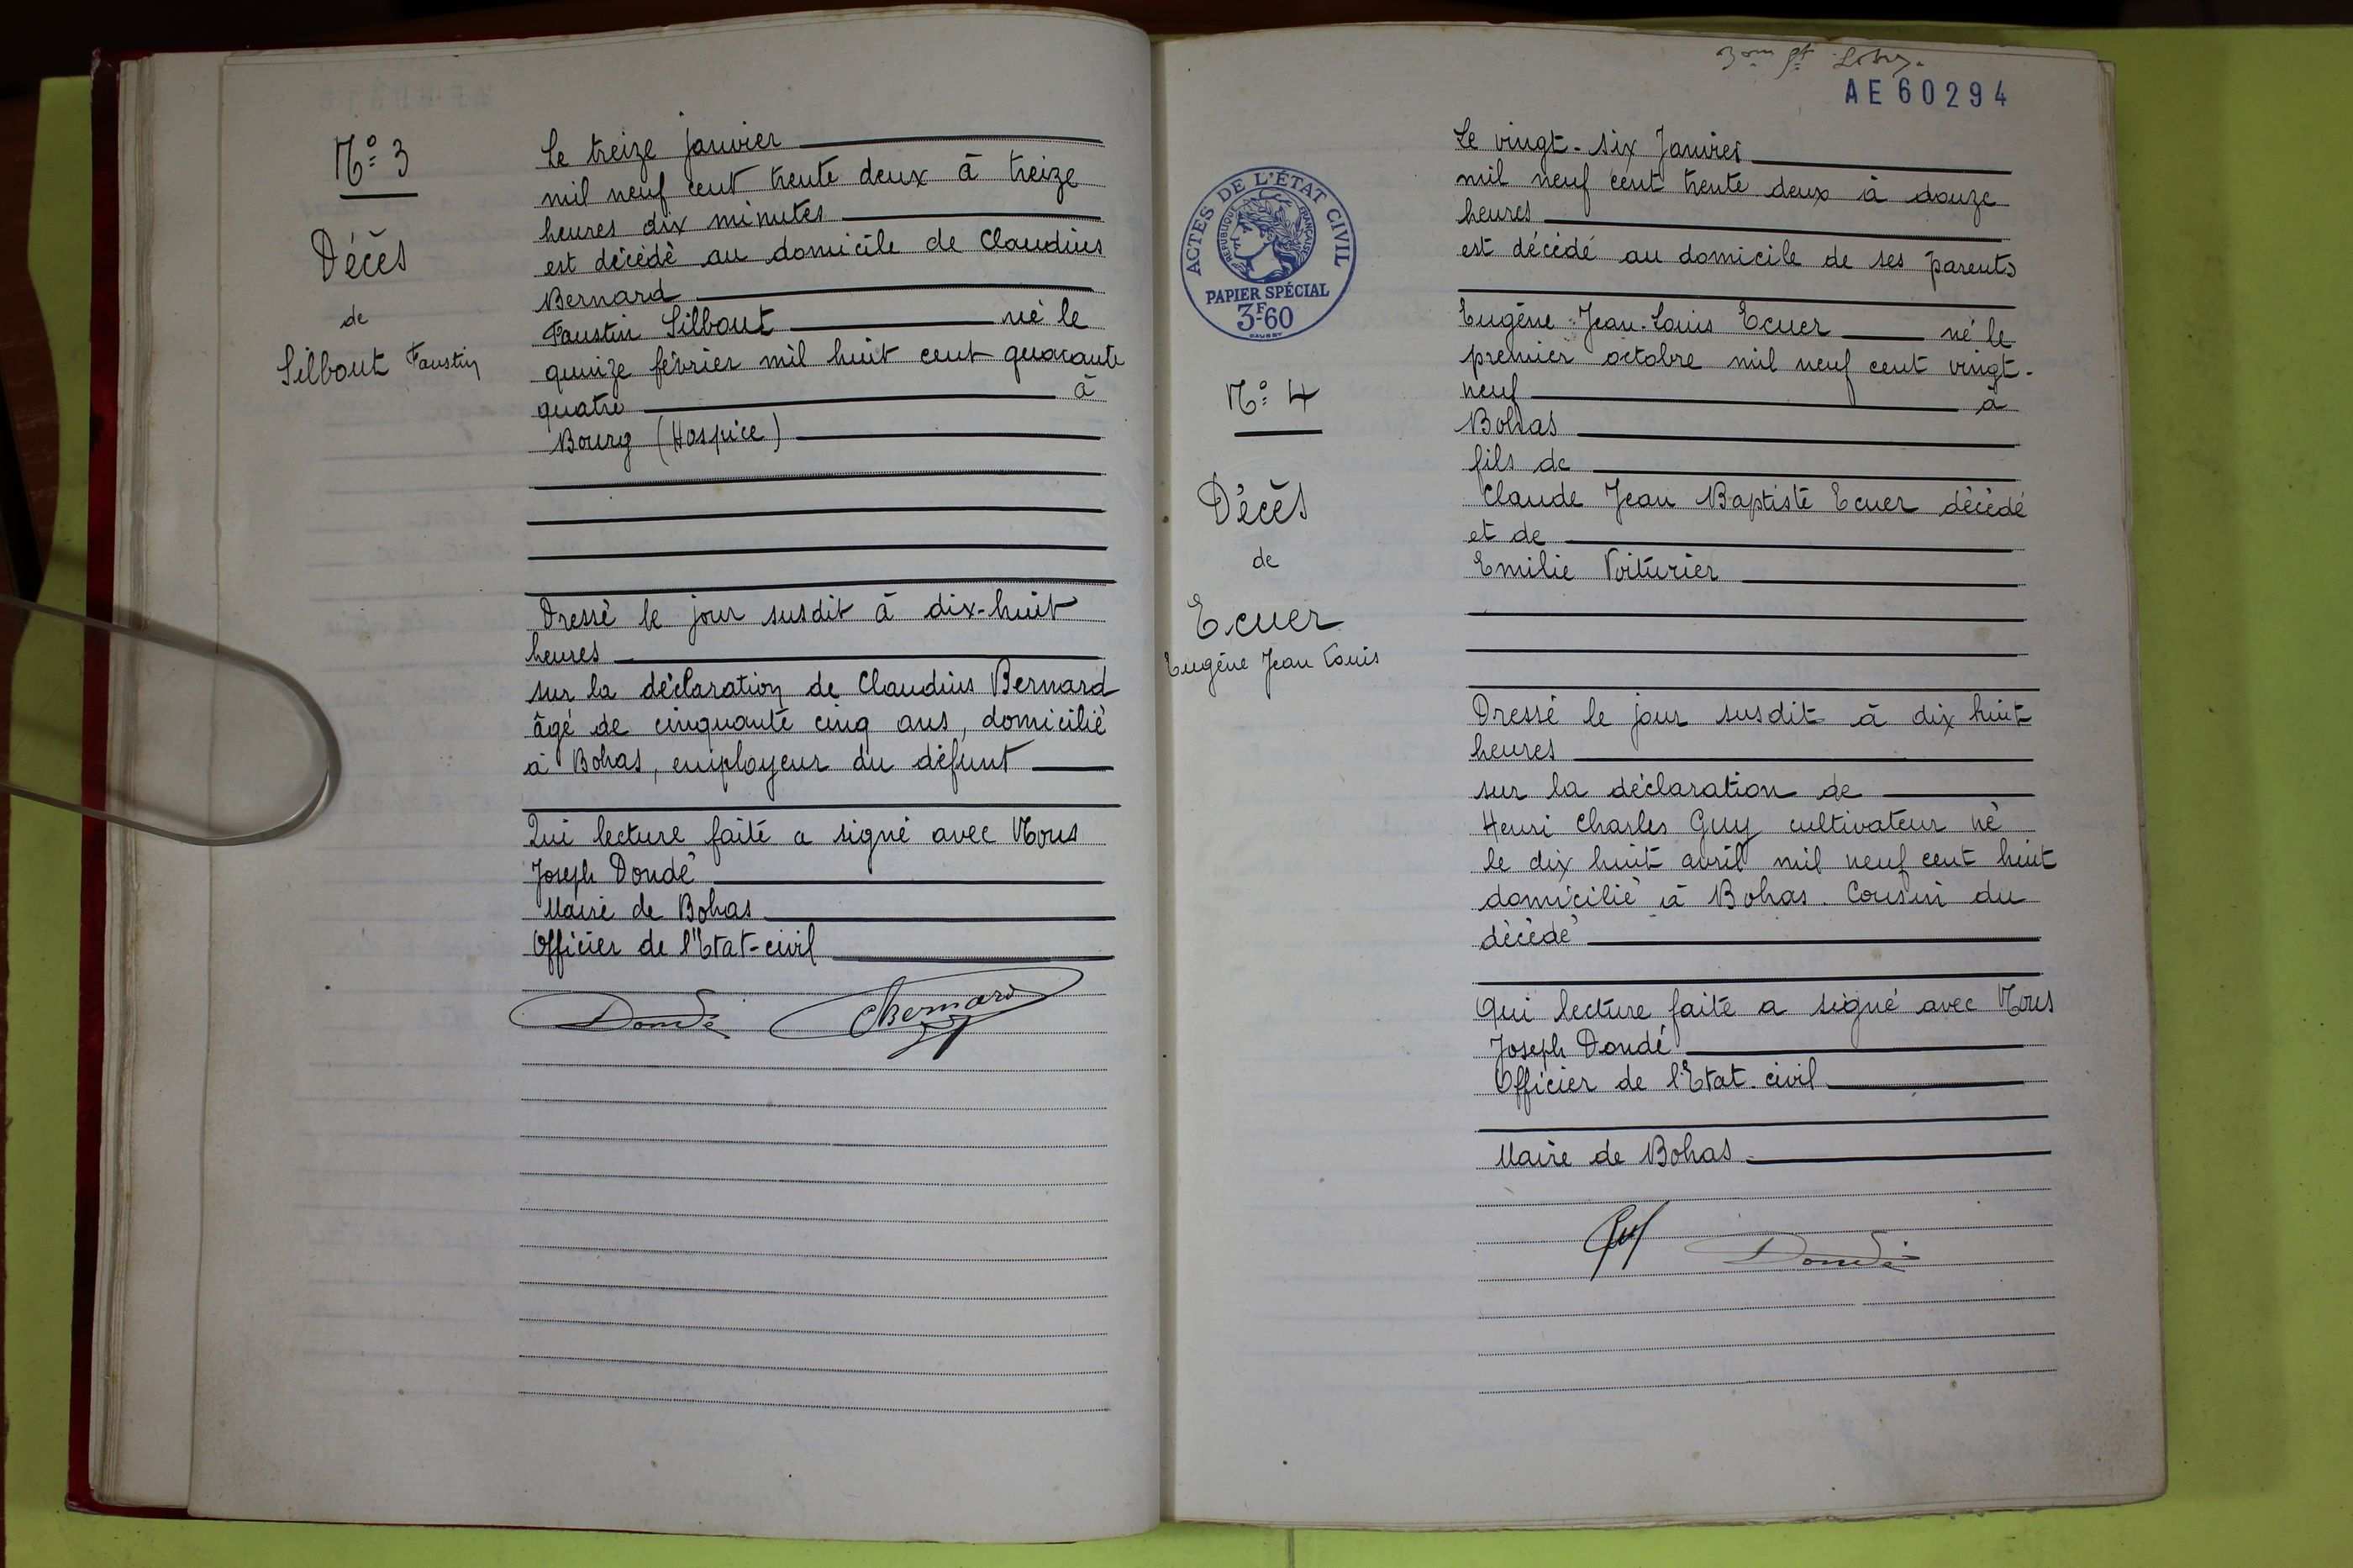 N° 3
Décès
de
Silbout Faustin
Le treize janvier
mil neuf cent trente deux à treize
heures dix minutes
est décédé au domicile de Claudius
Bernard
Faustin Silbout né le
quinze février mil huit cent quarante
quatre à
Bourg (Hospice)
Dressé le jour susdit à dix-huit
heures
sur la déclaration de Claudius Bernard
âgé de cinquante cinq ans, domicilié
à Bohas, employeur du défunt
Qui lecture faite a signé avec Nous
Joseph Dondé
Maire de Bohas
Officier de l'Etat-civil
Dondé CBernard
AE60294
ACTES DE L'ÉTAT CIVIL
RÉPUBLIQUE FRANÇAISE
PAPIER SPÉCIAL
3F60
N° 4
Décès
de
Ecuer
Eugéne Jean Louis
Le vingt-six Janvier
mil neuf cent trente deux à douze
heures
est décédé au domicile de ses parents
Eugéne Jean-Louis Ecuer né le
premier octobre mil neuf cent vingt-
neuf à
Bohas
fils de
Claude Jean Baptiste Ecuer décédé
et de
Emilie Voiturier
Dressé le jour susdit à dix huit
heures
sur la déclaration de
Henri Charles Guy cultivateur né
le dix huit avril mil neuf cent huit
domicilié à Bohas. Cousin du
décédé
Qui lecture faite a signé avec Nous
Joseph Dondé
Officier de l'Etat-civil
Maire de Bohas
Guy Dondé